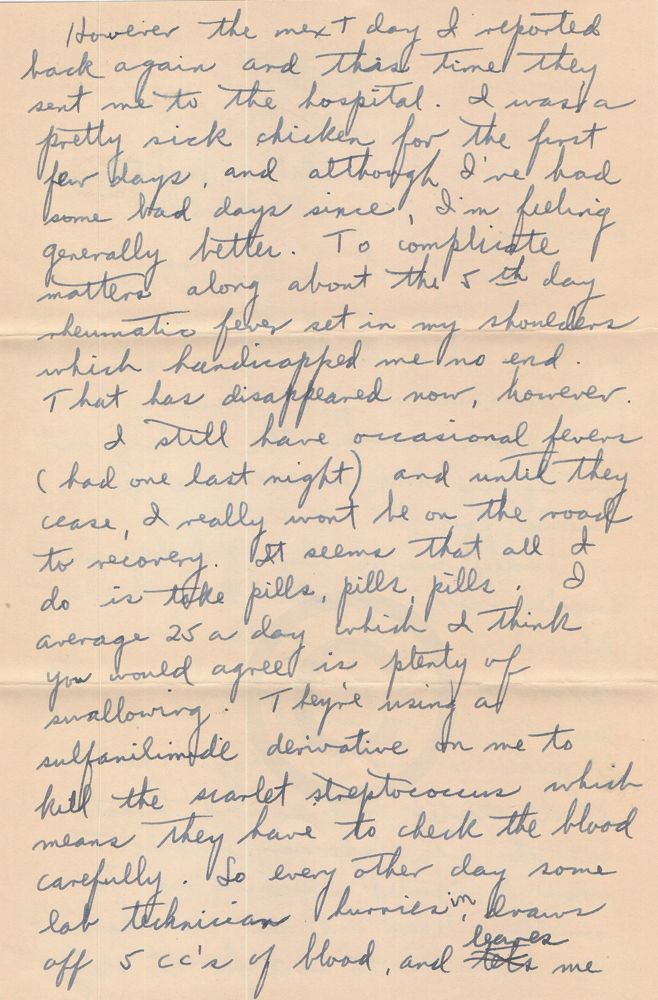 However the next day I reported
back again and this time they
sent me to the hospital. I was a
pretty sick chicken for the first
few days, and although I've had
some bad days since, I'm feeling
generally better. To complicate
matters along about the 5th day
rheumatic fever set in my shoulders
which handicapped me no end.
That has disappeared now, however.
I still have occasional fevers
(had one last night) and until they
cease, I really wont be on the road
to recovery. It seems that all I
do is take pills, pills, pills. I
average 25 a day which I think
you would agree is plenty of
swallowing. They're using a
sulfanilimide derivative on me to
kill the scarlet streptococcus which
means they have to check the blood
carefully. So every other day some
lab technician hurries in, draws
off 5 cc's of blood, and leaves me